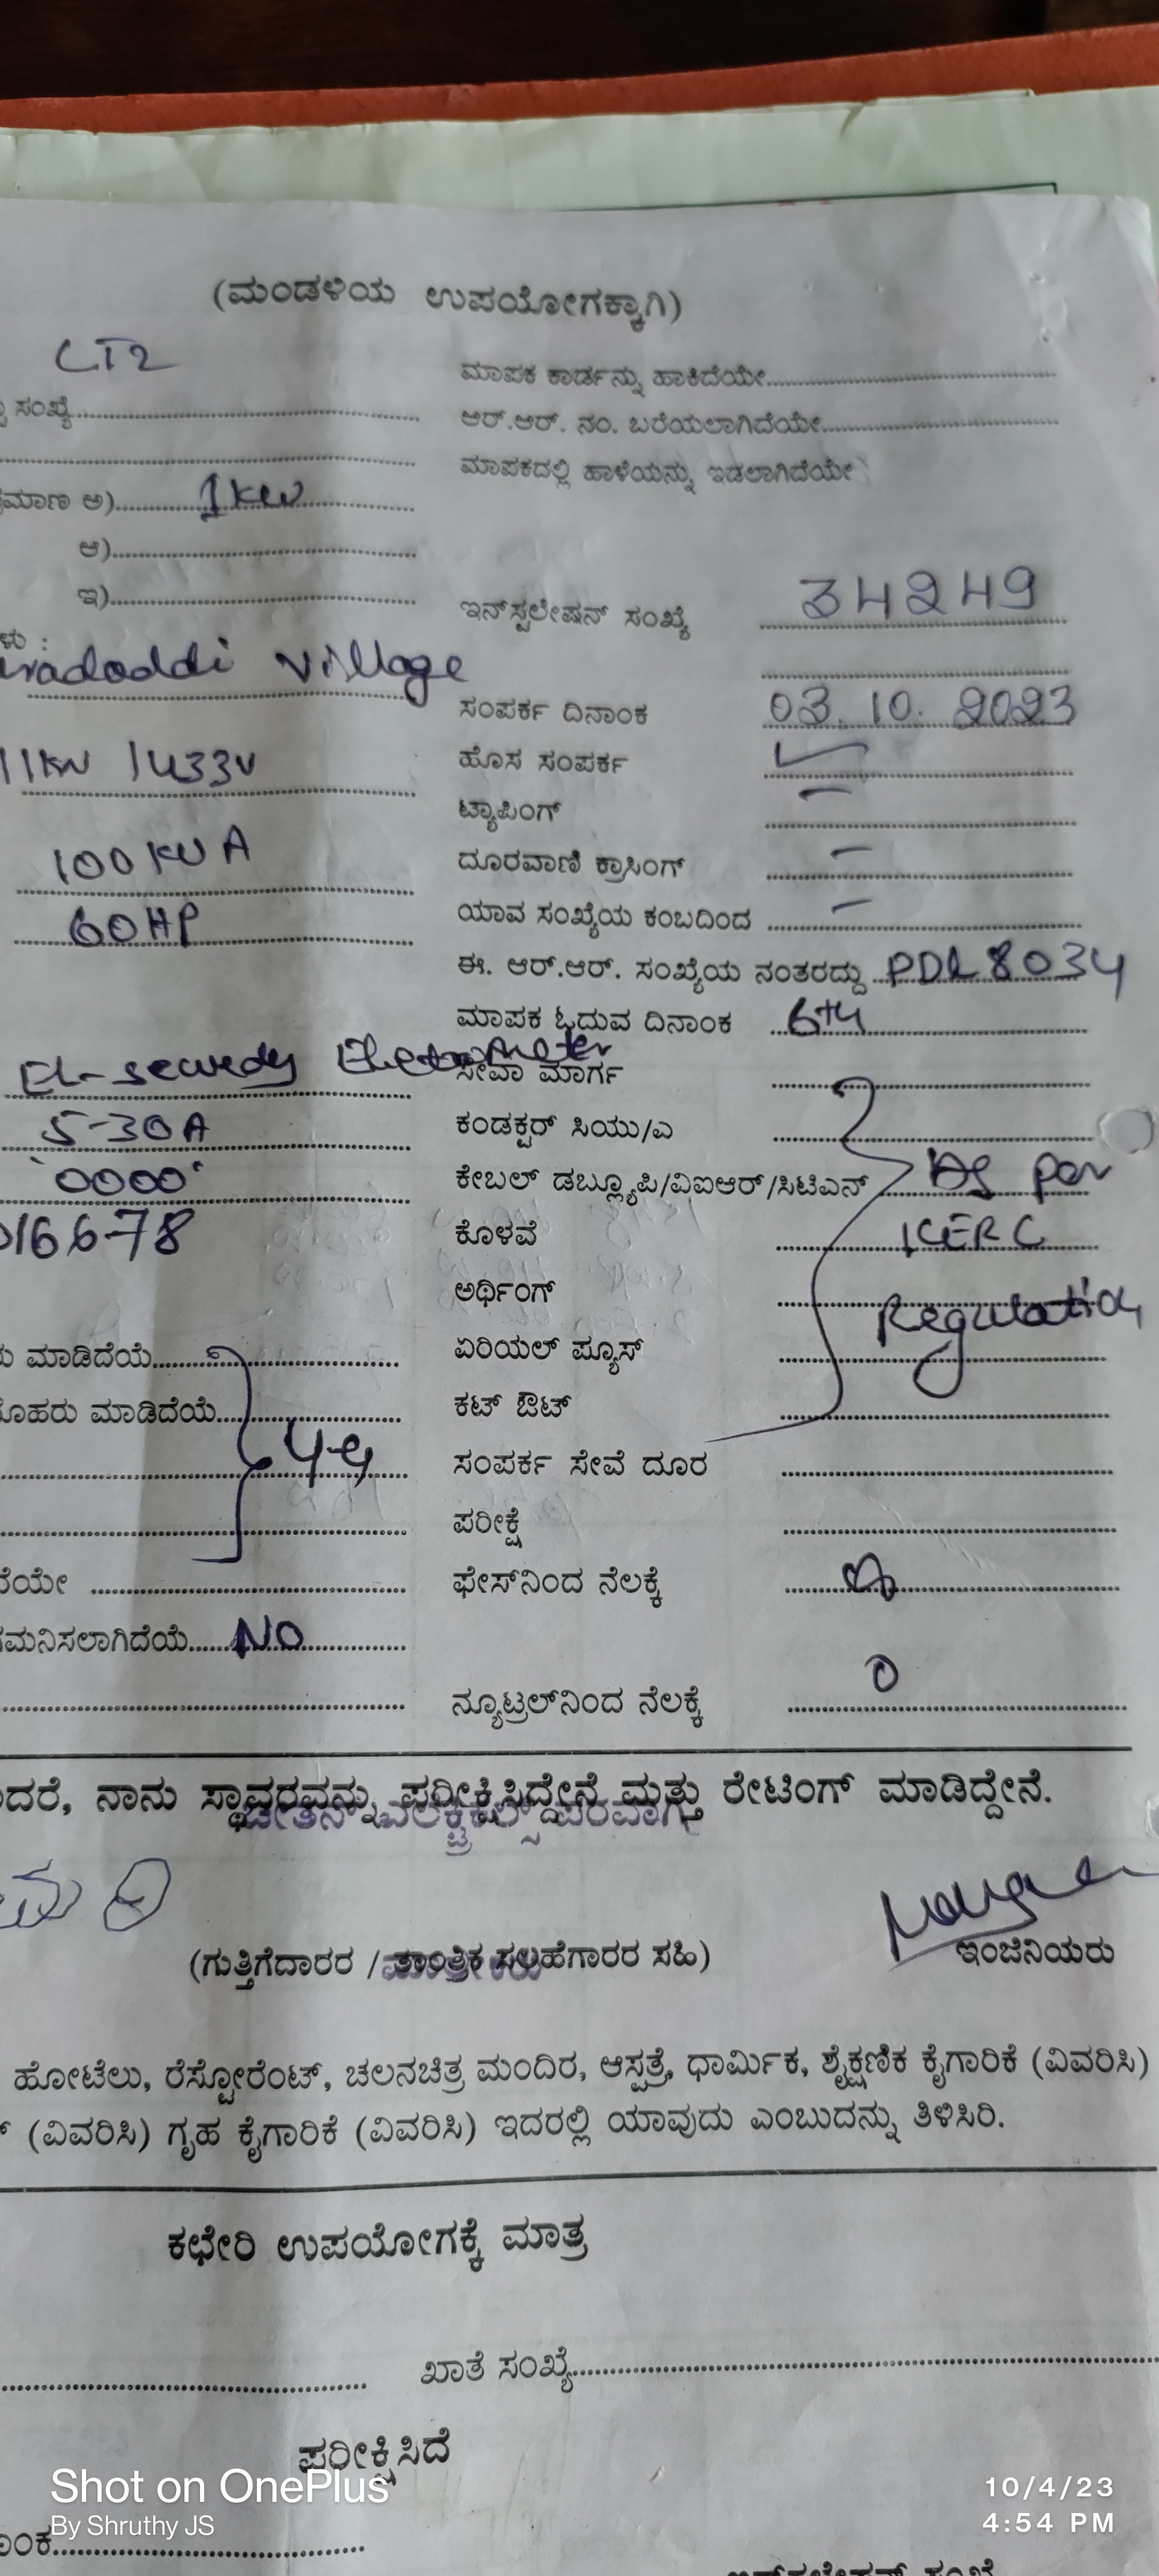 (ಮಂಡಳಿಯ ಉಪಯೋಗಕ್ಕಾಗಿ)
LT2
ಮಾಪಕ ಕಾರ್ಡನ್ನು ಹಾಕಿದೆಯೇ
ಸಂಖ್ಯೆ
ಆರ್.ಆರ್. ನಂ. ಬರೆಯಲಾಗಿದೆಯೇ
ಮಾಪಕದಲ್ಲಿ ಹಾಳೆಯನ್ನು ಇಡಲಾಗಿದೆಯೇ
ಮಾಣ ಅ) 1kw
ಆ)
ಇ)
ಇನ್‌ಸ್ಟಲೇಷನ್ ಸಂಖ್ಯೆ 34249
ಳು :
radoddi village
ಸಂಪರ್ಕ ದಿನಾಂಕ 03.10.2023
11kv 1433v
ಹೊಸ ಸಂಪರ್ಕ ✓
ಟ್ಯಾಪಿಂಗ್ –
100 KVA
ದೂರವಾಣಿ ಕ್ರಾಸಿಂಗ್ –
60HP
ಯಾವ ಸಂಖ್ಯೆಯ ಕಂಬದಿಂದ –
ಈ. ಆರ್.ಆರ್. ಸಂಖ್ಯೆಯ ನಂತರದ್ದು PDL8034
ಮಾಪಕ ಓದುವ ದಿನಾಂಕ 6th
ಸೇವಾ ಮಾರ್ಗ
5-30A
ಕಂಡಕ್ಟರ್ ಸಿಯು/ಎ
'0000'
ಕೇಬಲ್ ಡಬ್ಲ್ಯೂಪಿ/ವಿಐಆರ್/ಸಿಟಿಎನ್ As per
16678
ಕೊಳವೆ KERC
ಅರ್ಥಿಂಗ್ Regulation
ು ಮಾಡಿದೆಯೆ
ಏರಿಯಲ್ ಪ್ಯೂಸ್
ೊಹರು ಮಾಡಿದೆಯೆ
ಕಟ್ ಔಟ್
ಸಂಪರ್ಕ ಸೇವೆ ದೂರ
ಪರೀಕ್ಷೆ
ೆಯೇ
ಫೇಸ್‌ನಿಂದ ನೆಲಕ್ಕೆ
ಮನಿಸಲಾಗಿದೆಯೆ NO
ನ್ಯೂಟ್ರಲ್‌ನಿಂದ ನೆಲಕ್ಕೆ 0
ದರೆ, ನಾನು ಸ್ಥಾವರವನ್ನು ಪರೀಕ್ಷಿಸಿದ್ದೇನೆ ಮತ್ತು ರೇಟಿಂಗ್ ಮಾಡಿದ್ದೇನೆ.
ಚೇತನ್ ಎಲೆಕ್ಟ್ರಿಕಲ್ಸ್ ಪರವಾಗಿ
(ಗುತ್ತಿಗೆದಾರರ / ತಾಂತ್ರಿಕ ಸಲಹೆಗಾರರ ಸಹಿ)
ಇಂಜಿನಿಯರು
ಹೋಟೆಲು, ರೆಸ್ಟೋರೆಂಟ್, ಚಲನಚಿತ್ರ ಮಂದಿರ, ಆಸ್ಪತ್ರೆ, ಧಾರ್ಮಿಕ, ಶೈಕ್ಷಣಿಕ ಕೈಗಾರಿಕೆ (ವಿವರಿಸಿ)
(ವಿವರಿಸಿ) ಗೃಹ ಕೈಗಾರಿಕೆ (ವಿವರಿಸಿ) ಇದರಲ್ಲಿ ಯಾವುದು ಎಂಬುದನ್ನು ತಿಳಿಸಿರಿ.
ಕಛೇರಿ ಉಪಯೋಗಕ್ಕೆ ಮಾತ್ರ
ಖಾತೆ ಸಂಖ್ಯೆ
ಪರೀಕ್ಷಿಸಿದೆ
Shot on OnePlus
By Shruthy JS
10/4/23
4:54 PM